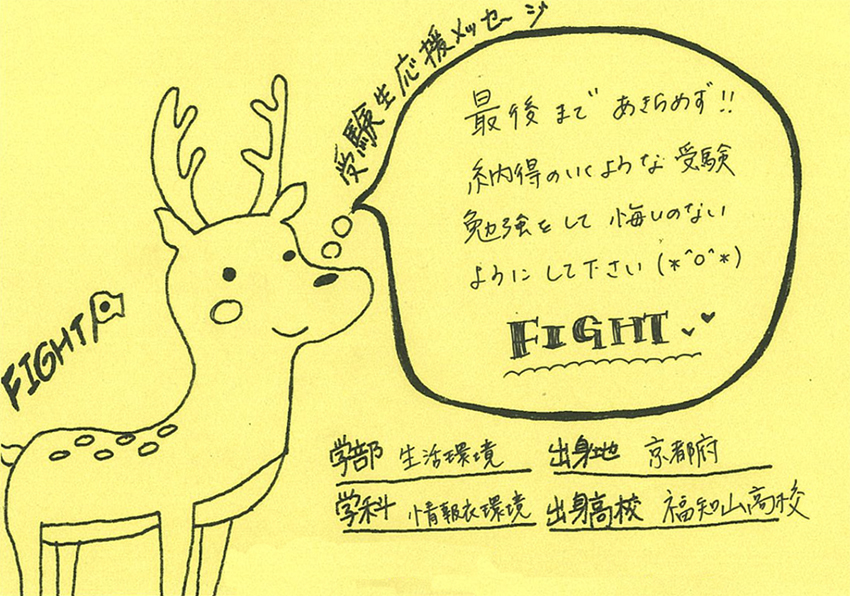 受験生応援メッセージ
最後まで あきらめず!!
納得のいくような受験
勉強をして 悔いのない
ようにして下さい (*^o^*)
FIGHT
FIGHT
学部 生活環境 出身地 京都府
学科 情報衣環境 出身高校 福知山高校